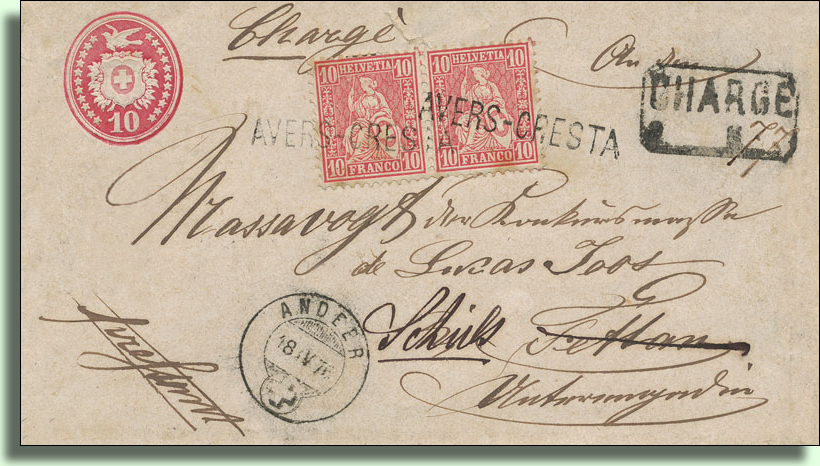 Chargé
An den
10
10 HELVETIA 10
10 FRANCO 10
10 HELVETIA 10
10 FRANCO 10
AVERS-CRESTA
AVERS-CRESTA
CHARGÉ
N.
77
Massavogt der Konkursmasse
de Lucas Joos
Schuls Fettan
Unterengadin
ANDEER
18 IV 7